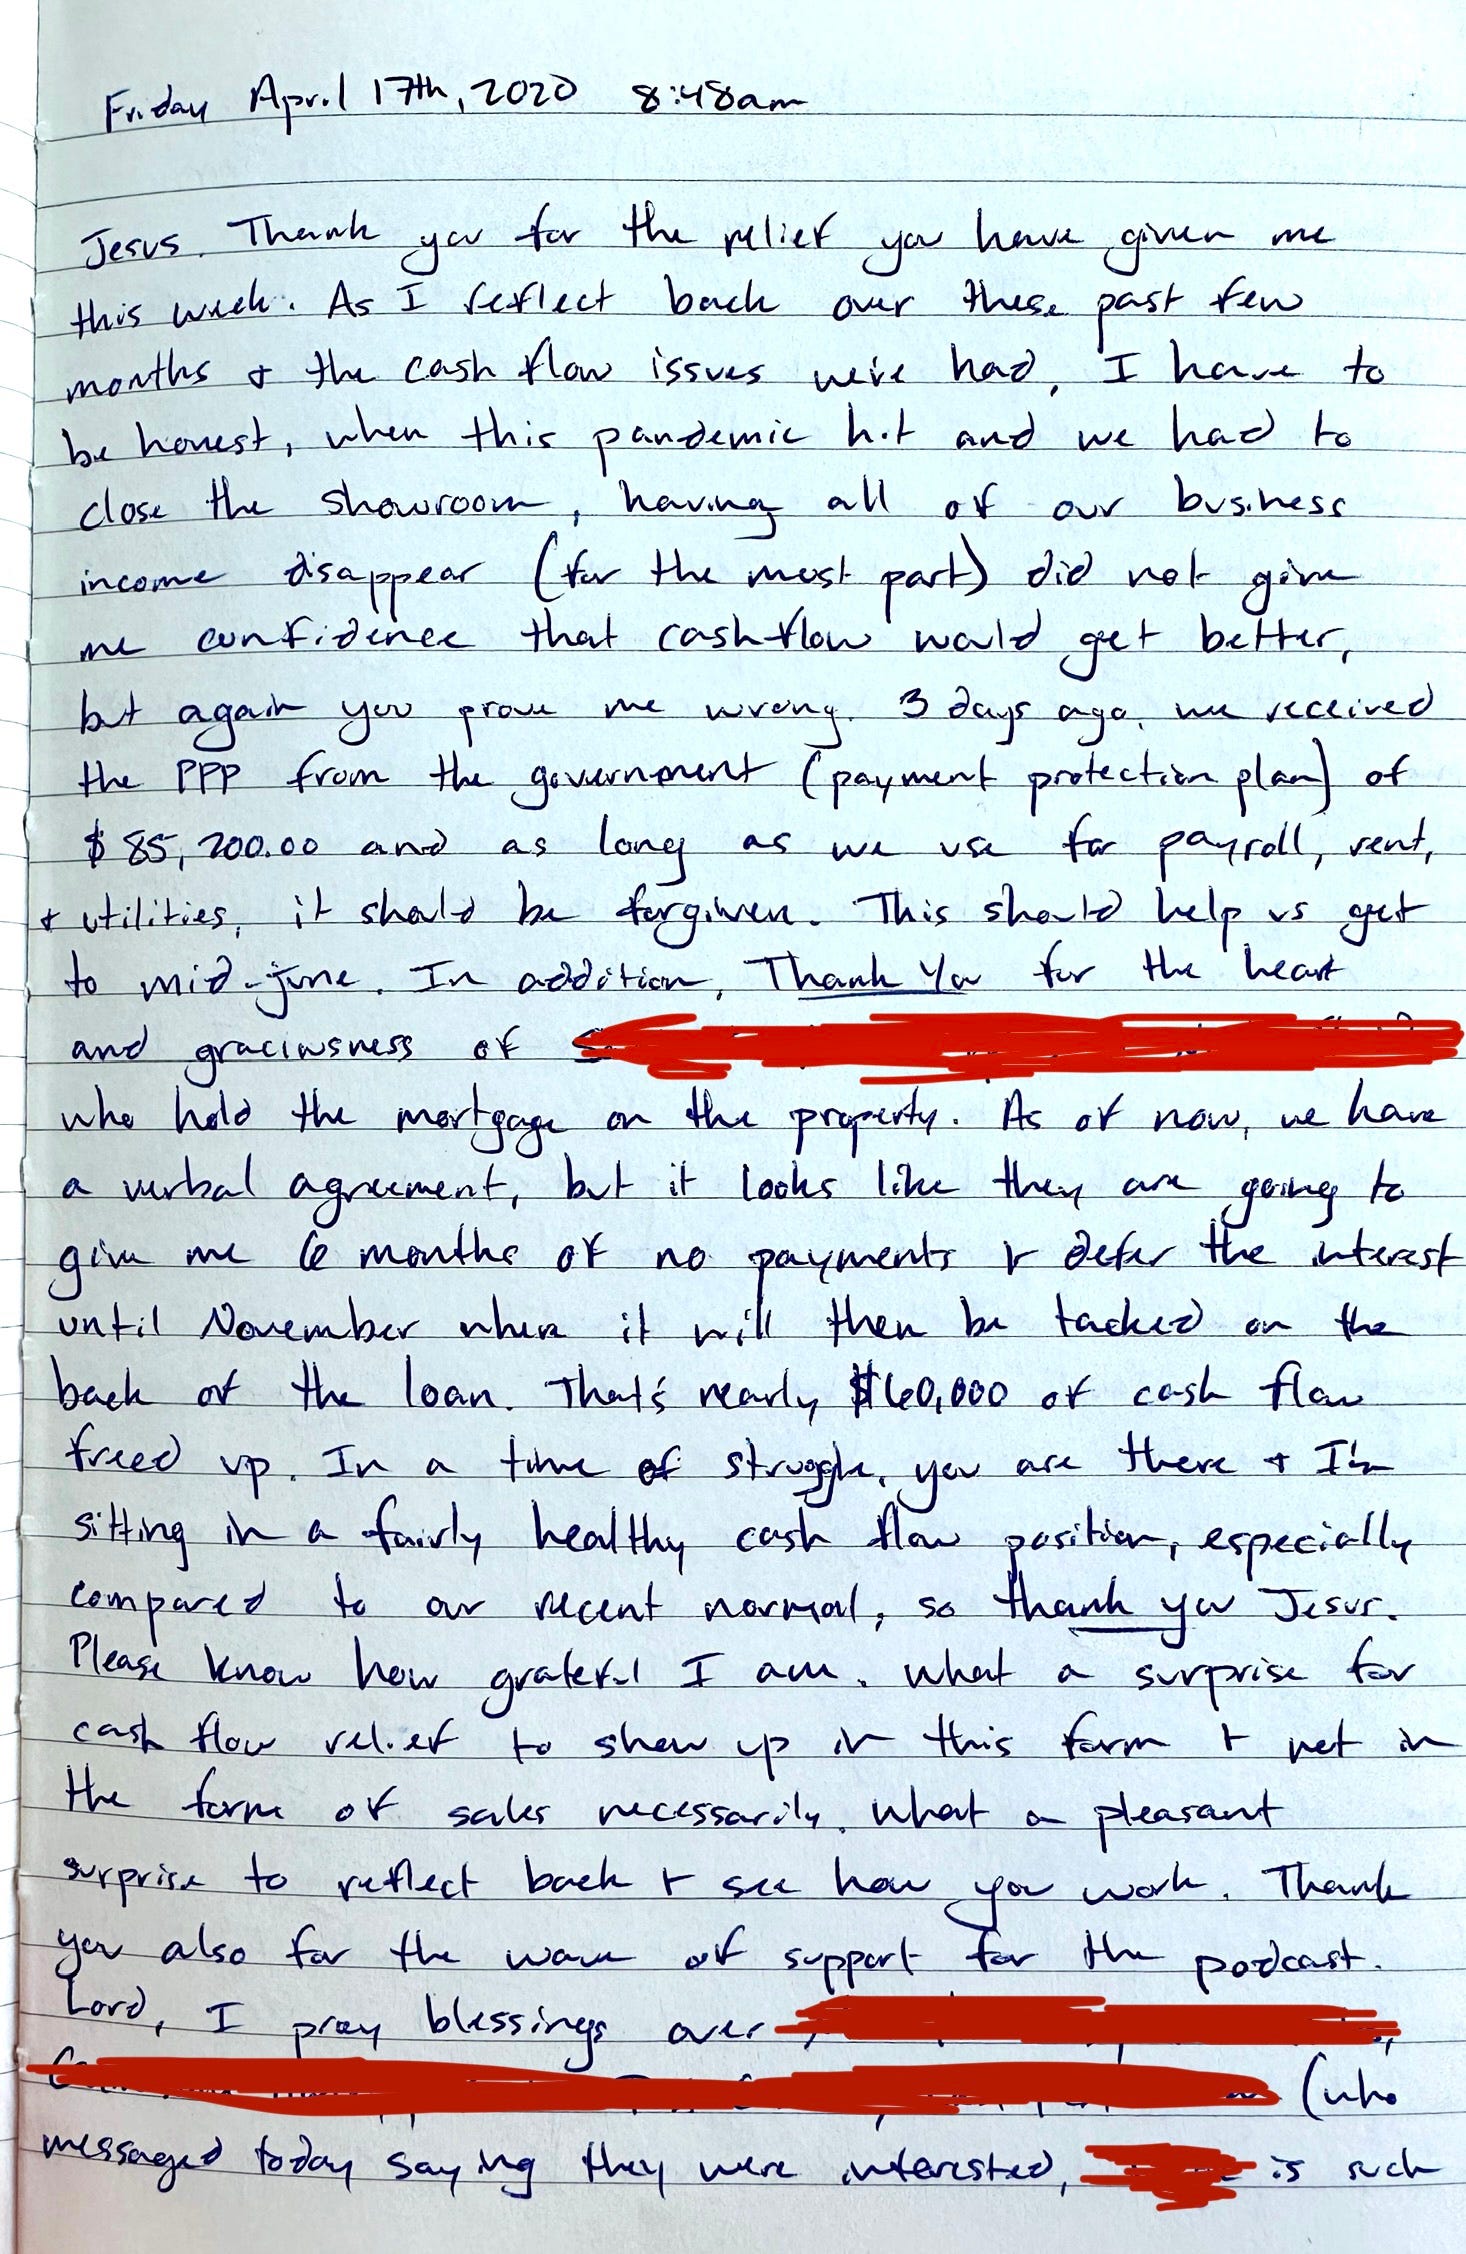 Friday April 17th, 2020 8:48am
Jesus. Thank you for the relief you have given me
this week. As I reflect back over these past few
months & the cash flow issues we've had, I have to
be honest, when this pandemic hit and we had to
close the showroom, having all of our business
income disappear (for the most part) did not give
me confidence that cashflow would get better,
but again you prove me wrong. 3 days ago, we received
the PPP from the government (payment protection plan) of
$85,200.00 and as long as we use for payroll, rent,
& utilities, it should be forgiven. This should help us get
to mid-june. In addition, Thank You for the heart
and graciousness of
who hold the mortgage on the property. As of now, we have
a verbal agreement, but it looks like they are going to
give me 6 months of no payments & defer the interest
until November where it will then be tacked on the
back of the loan. That's nearly $60,000 of cash flow
freed up. In a time of struggle, you are there & I'm
sitting in a fairly healthy cash flow position, especially
compared to our recent normal, so thank you Jesus.
Please know how grateful I am. What a surprise for
cash flow relief to show up in this form & not in
the form of sales necessarily. What a pleasant
surprise to reflect back & see how you work. Thank
you also for the wave of support for the podcast.
Lord, I pray blessings over
(who
messaged today saying they were interested, is such